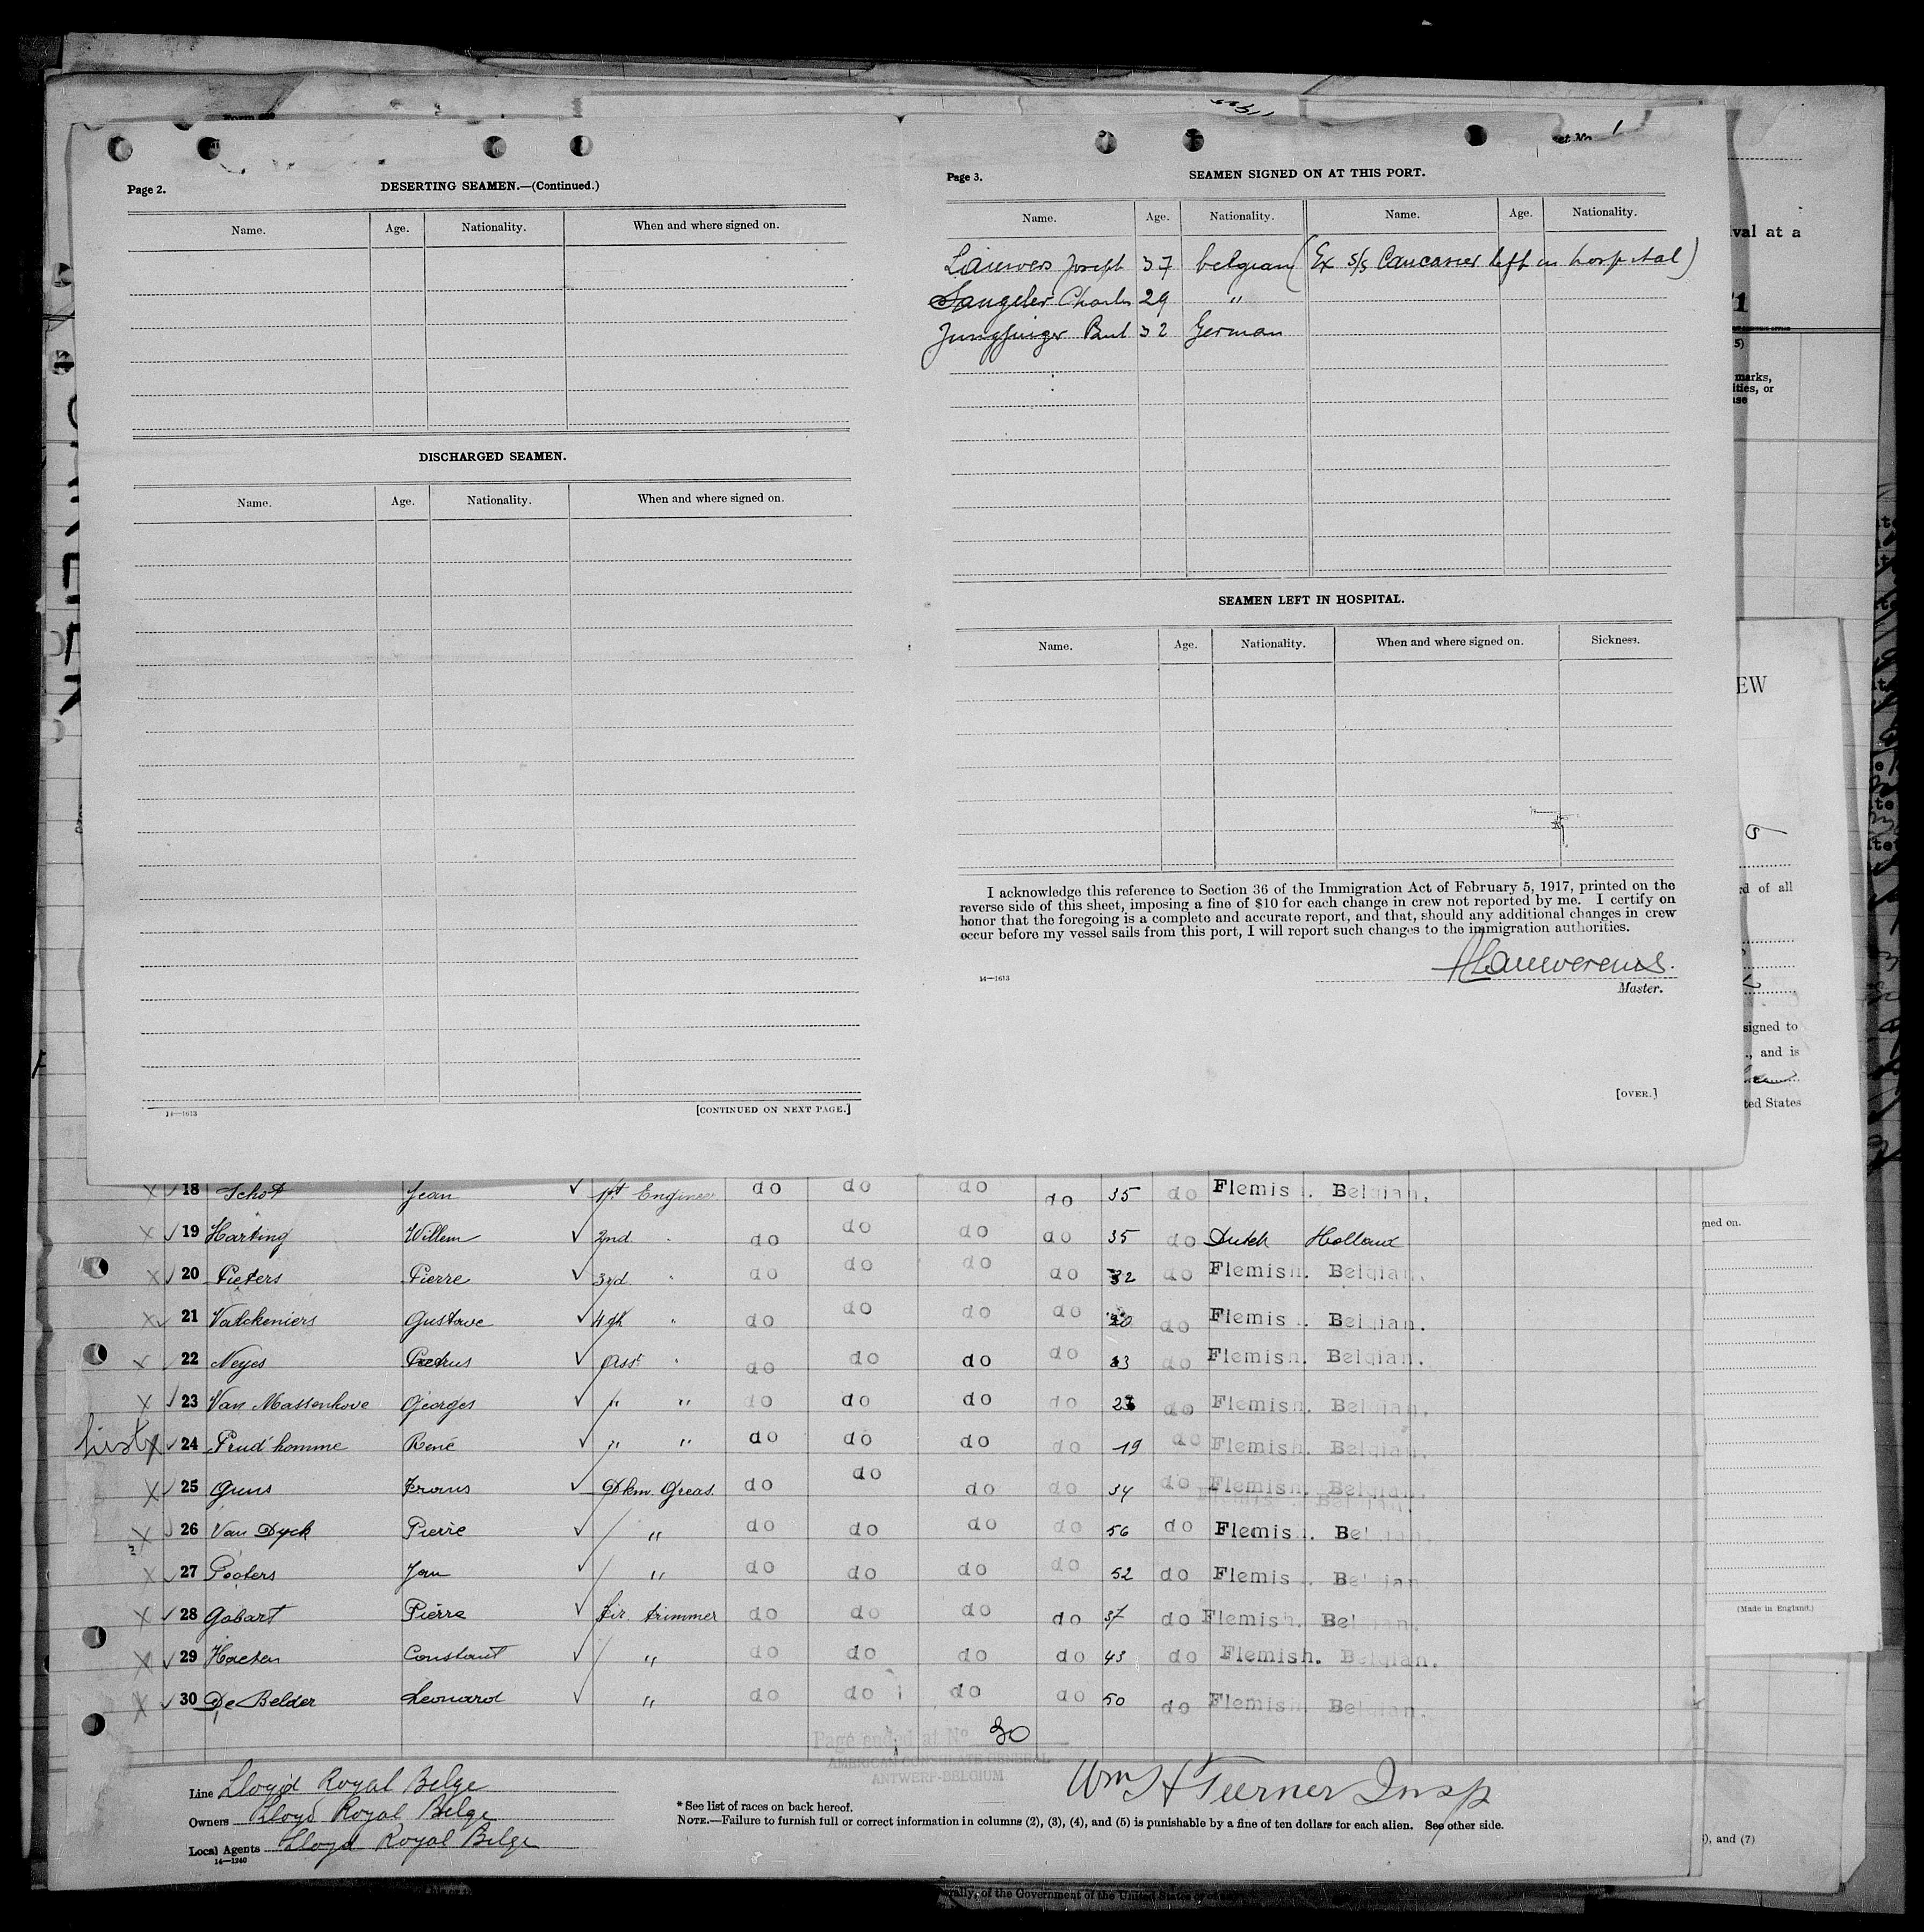 Page 2.
DESERTING SEAMEN.—(Continued.)
Name. Age. Nationality. When and where signed on.
DISCHARGED SEAMEN.
Name. Age. Nationality. When and where signed on.
14—1613
[CONTINUED ON NEXT PAGE.]
1
Page 3.
SEAMEN SIGNED ON AT THIS PORT.
Name. Age. Nationality. Name. Age. Nationality.
Lauwers Joseph 37 belgian (Ex S/S Caucasier left in hospital)
Charles 29 "
32 German
SEAMEN LEFT IN HOSPITAL.
Name. Age. Nationality. When and where signed on. Sickness.
I acknowledge this reference to Section 36 of the Immigration Act of February 5, 1917, printed on the
reverse side of this sheet, imposing a fine of $10 for each change in crew not reported by me. I certify on
honor that the foregoing is a complete and accurate report, and that, should any additional changes in crew
occur before my vessel sails from this port, I will report such changes to the immigration authorities.
14—1613
Master.
[OVER.]
val at a
marks,
ities, or
EW
d of all
signed to
., and is
ted States
ned on.
(Made in England.)
), and (7)
18 Schot Jean 1st Engineer do do do do 35 do Flemis . Belgian.
19 Harting Willem 2nd " do do do do 35 do Dutch Holland
20 Pieters Pierre 3rd " do do do do 32 do Flemish. Belgian.
21 Valckeniers Gustave 4th " do do do do 20 do Flemis . Belgian.
22 Neyes Petrus Asst " do do do do 33 do Flemish. Belgian.
23 Van Massenhove Georges " " do do do do 23 do Flemish. Belgian.
24 Prud'homme René " " do do do do 19 do Flemish. Belgian.
25 Guns Frans Dkm. Greas. do do do do 34 do Flemish. Belgian.
26 Van Dyck Pierre " do do do do 56 do Flemis . Belgian.
27 Pooters Jan " do do do do 52 do Flemis . Belgian.
28 Gobart Pierre fir. trimmer do do do do 37 do Flemish. Belgian.
29 Haesen Constant " do do do do 43 do Flemish. Belgian.
30 De Belder Leonard " do do do do 50 do Flemish. Belgian.
Page ended at No 30
AMERICAN CONSULATE GENERAL
ANTWERP-BELGIUM
Line Lloyd Royal Belge
Owners Lloyd Royal Belge
Local Agents Lloyd Royal Belge
14—1240
Wm H Turner Insp
* See list of races on back hereof.
NOTE.—Failure to furnish full or correct information in columns (2), (3), (4), and (5) is punishable by a fine of ten dollars for each alien. See other side.
ally, of the Government of the United States or of